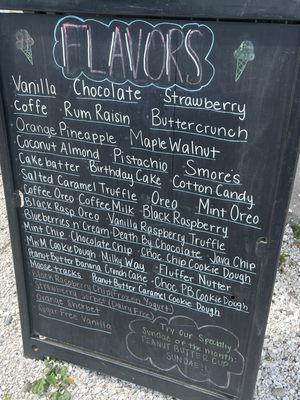 FLAVORS
Vanilla Chocolate Strawberry
Coffe Rum Raisin Buttercrunch
Orange Pineapple Maple Walnut
Coconut Almond Pistachio Smores
Cake batter Birthday Cake Cotton Candy
Salted Caramel Truffle Oreo Mint Oreo
Coffee Oreo Coffee Milk Black Raspberry
Black Rasp. Oreo Vanilla Raspberry Truffle
Blueberries n' Cream Death By Chocolate Java Chip
Mint Chip Chocolate Chip Choc Chip Cookie Dough
MnM Cookie Dough Milky Way Fluffer Nutter
Peanut Butter Banana Crunch Cake Choc PB Cookie Dough
Moose tracks Peanut Butter Caramel Cookie Dough
Black Raspberry Chip (Frozen Yogurt)
Strawberry Sorbet (Dairy Free)
Orange Sherbet
Sugar Free Vanilla
Try our Specialty
Sundae of the month:
PEANUT BUTTER CUP
SUNDAE!!